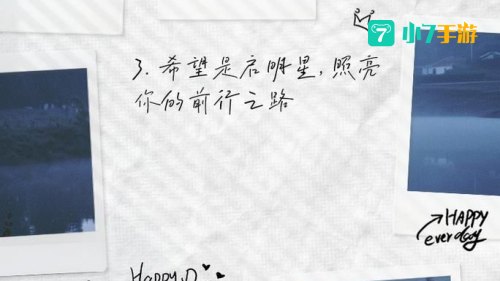 小7手游
3. 希望是启明星,照亮
你的前行之路
HAPPY
everday
Happy